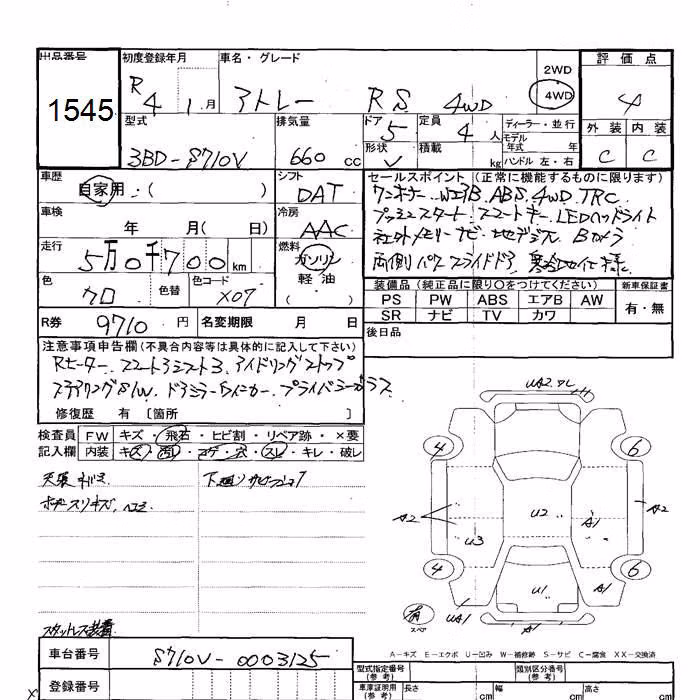 出品番号 初度登録年月 車名・グレード 評価点
1545 R4 1月 アトレー RS 4WD 2WD 4WD 4
型式 排気量 ドア 5 定員 4人 ディーラー・並行 外装 内装
3BD-S710V 660cc 形状 V 積載 kg モデル年式 年 ハンドル 左・右 C C
車歴 自家用・( ) シフト DAT セールスポイント(正常に機能するものに限ります)
ワンオーナー WエアB ABS 4WD TRC
車検 年 月( 日) 冷房 AAC プッシュスタート スマートキー LEDヘッドライト
社外メモリーナビ 地デジTV Bカメラ
走行 5万0千700km 燃料 ガソリン 軽油 ( )
両側パワースライドドア 寒冷地仕様
色 クロ 色替 色コード X07 装備品(純正品に限り○をつけてください) 新車保証書
PS PW ABS エアB AW 有・無
SR ナビ TV カワ
R券 9710円 名変期限 月 日 後日品
注意事項申告欄(不具合内容等は具体的に記入して下さい)
Rヒーター スマートアシスト3 アイドリングストップ
ステアリングS/W ドアミラーウインカー プライバシーガラス
修復歴 有 〔箇所 〕
検査員 FW キズ・飛石・ヒビ割・リペア跡・×要
記入欄 内装 キズ・汚レ・コゲ・穴・スレ・キレ・破レ
天張キバミ 下廻りサビ
ボデースリキズ、ヘコミ
UA2 ワレ
4 6
A2 U2 A1 A2
U3
4 6
U1 A1
有 スペア UA1 A1
スタットレス装着
A-キズ E-エクボ U-凹み W-補修跡 S-サビ C-腐食 XX-交換済
車台番号 S710V-0003125 型式指定番号(参考) 類別区分番号(参考)
登録番号 車庫証明用(参考) 長さ cm 幅 cm 高さ cm